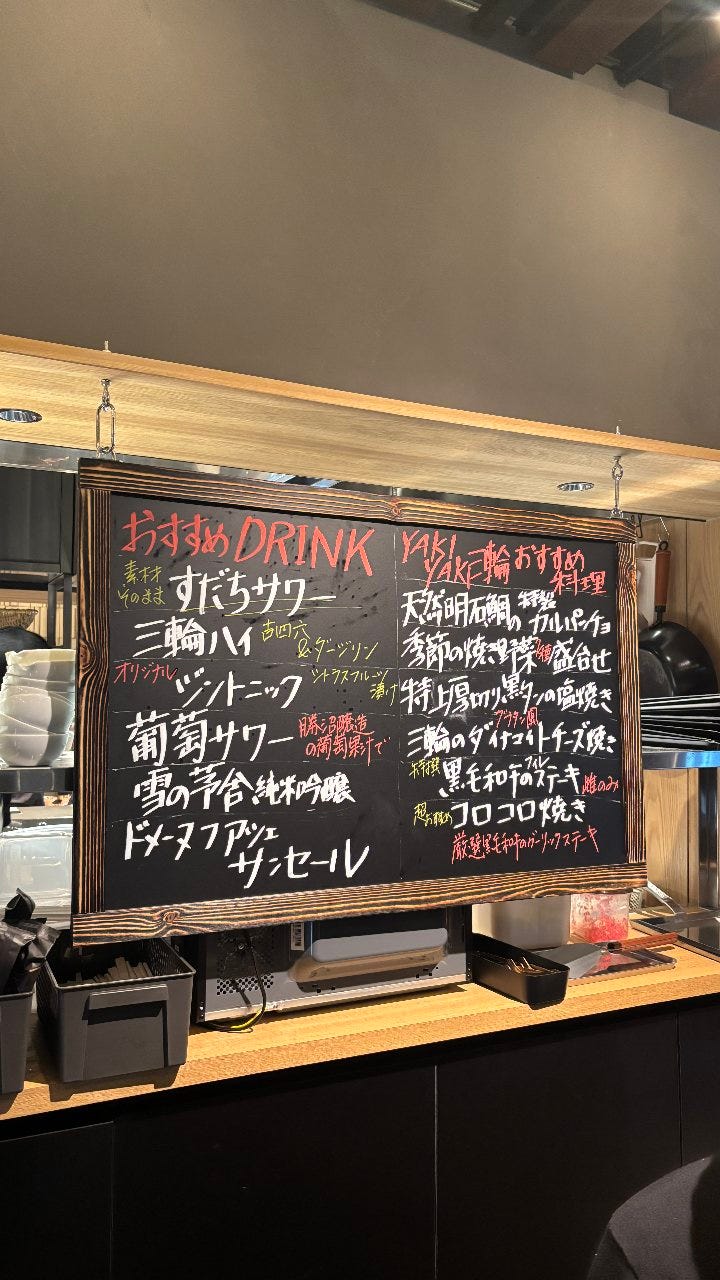 おすすめ DRINK
素材そのまま すだちサワー
三輪ハイ 吉四六&ダージリン
オリジナル ジントニック シトラスフルーツ漬け
葡萄サワー 勝沼醸造の葡萄果汁で
雪の茅舎 純米吟醸
ドメーヌフアッシェ
サンセール
YAKIYAKI三輪おすすめ料理
天然明石鯛の特製カルパッチョ
季節の焼き野菜 盛合せ
特上厚切り黒タンの塩焼き
三輪のダイナマイトチーズ焼き グラタン風
特撰 黒毛和牛のフィレステーキ 雌のみ
超おすすめ コロコロ焼き
厳選黒毛和牛のガーリックステーキ